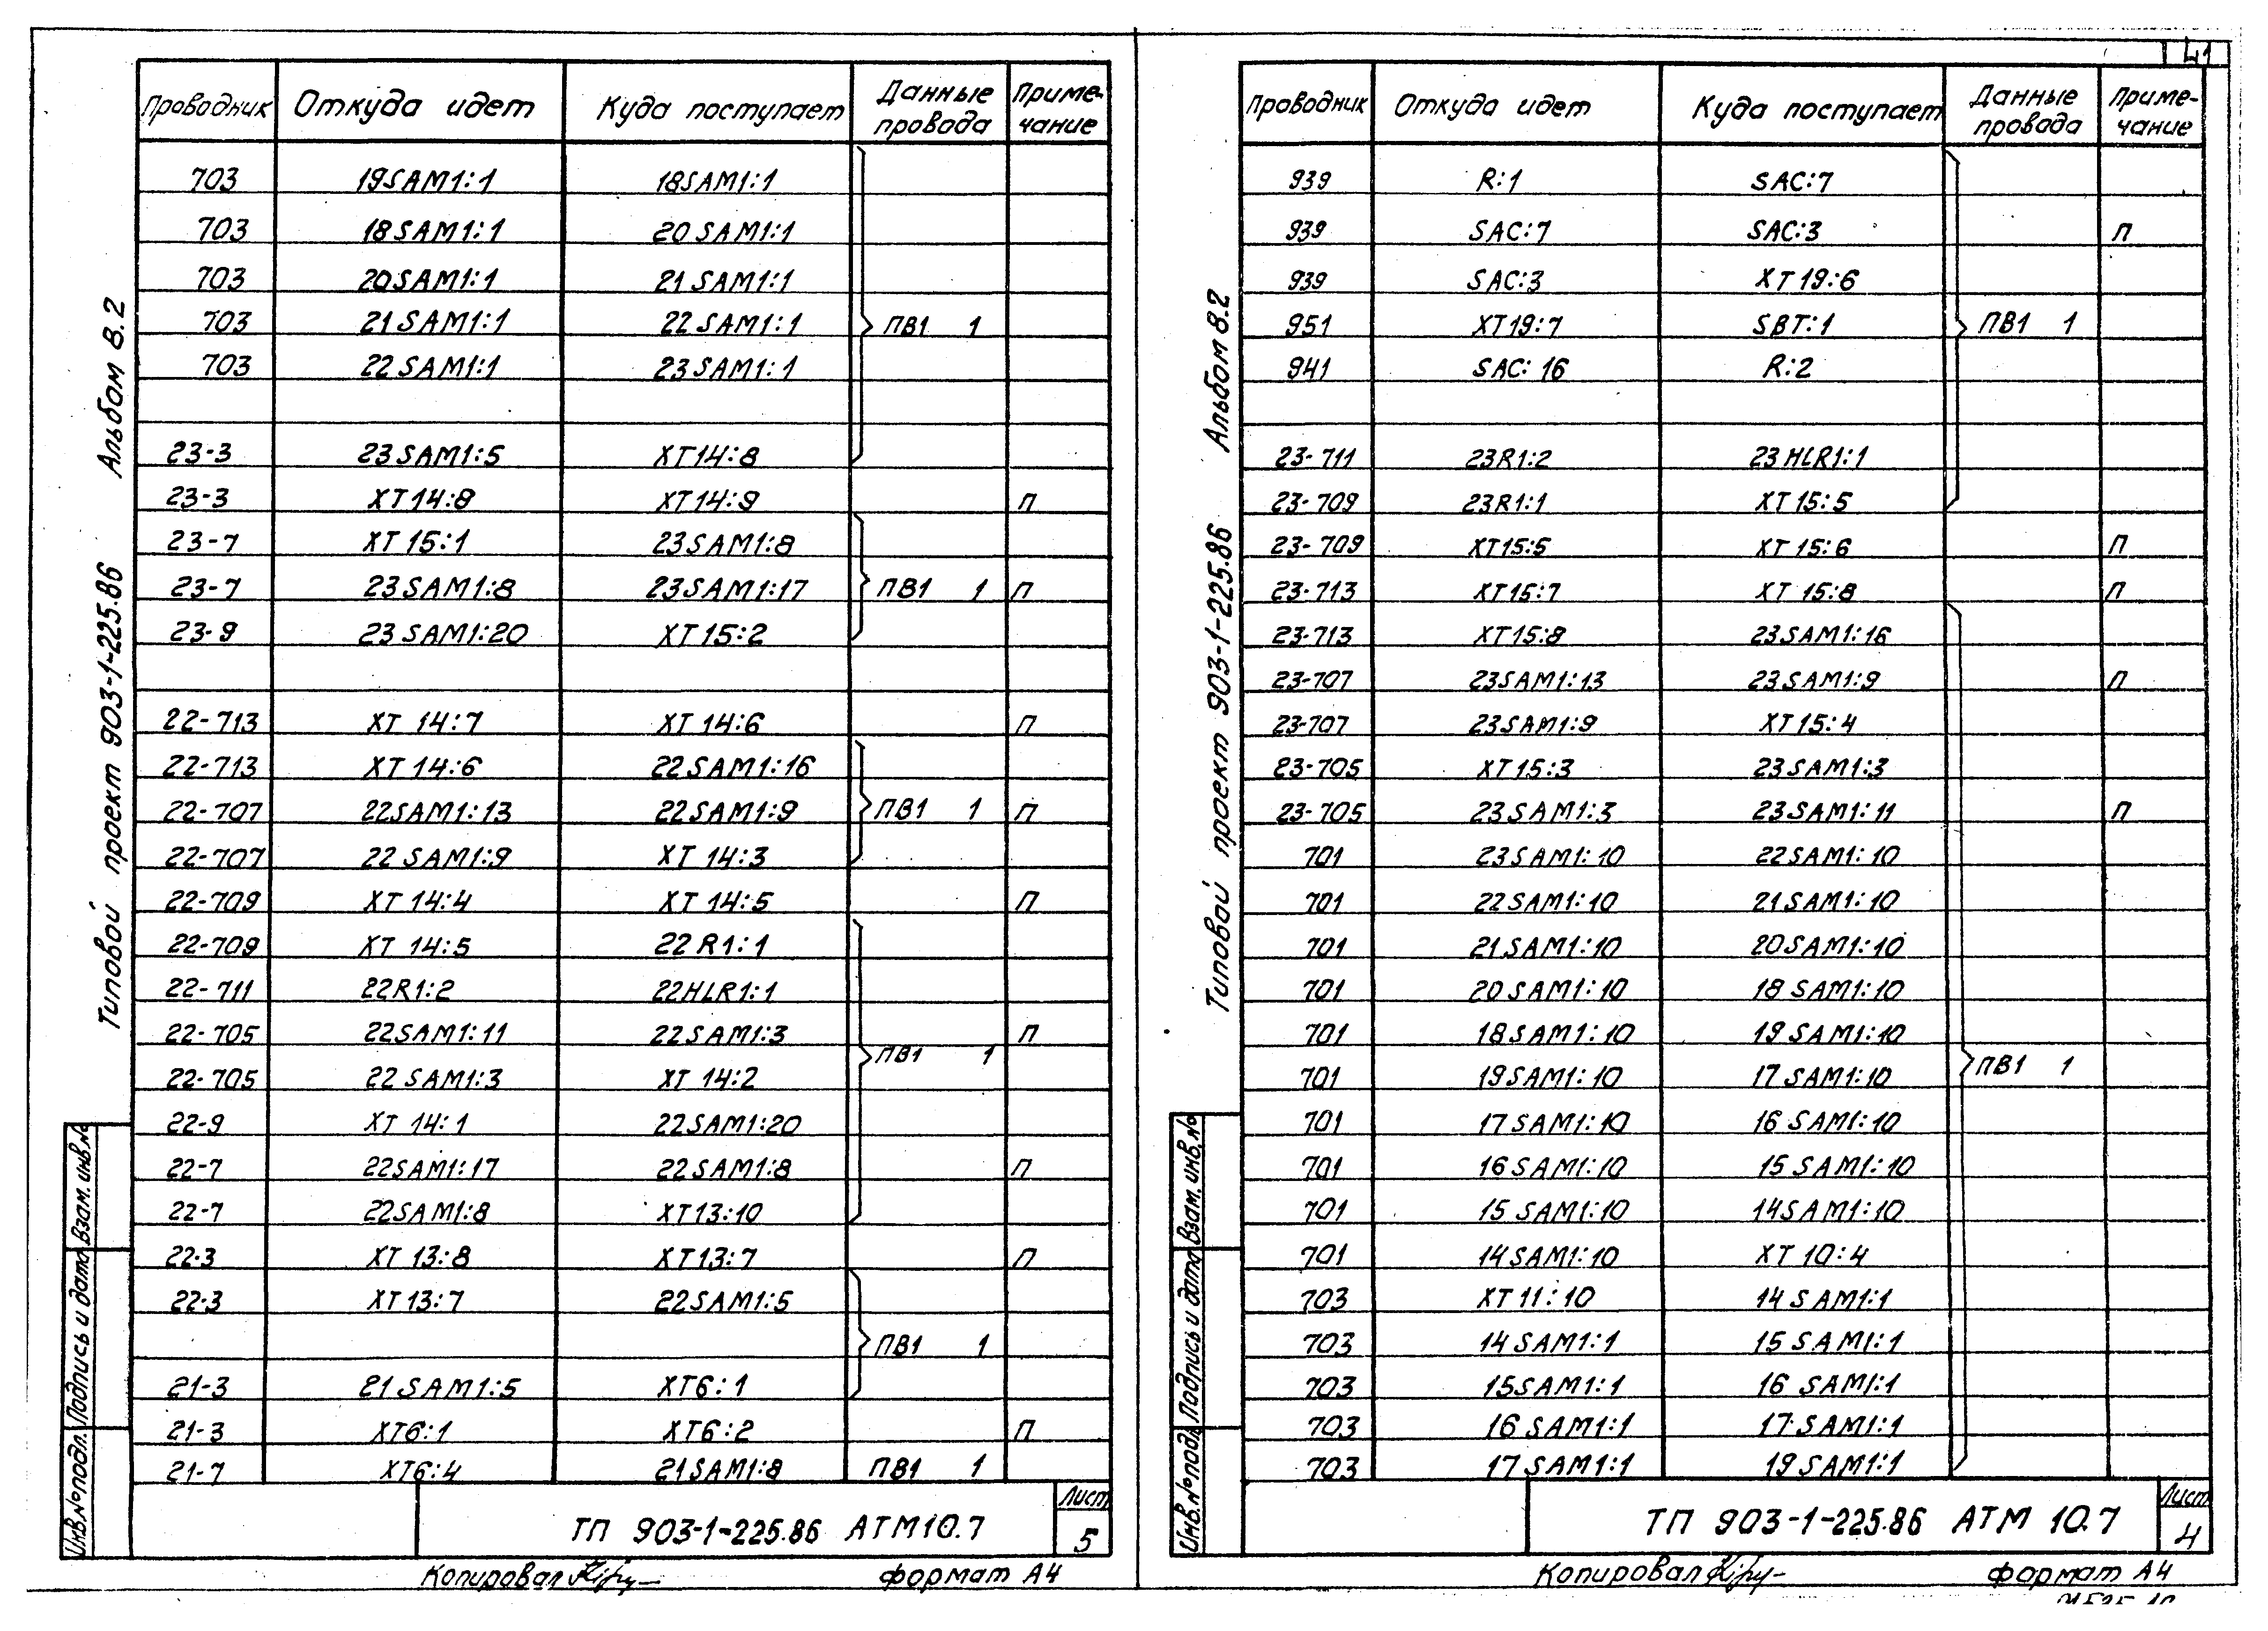 41
Типовой проект 903-1-225.86 Альбом 8.2
Проводник Откуда идет Куда поступает Данные провода Приме-чание
703 19SAM1:1 18SAM1:1
703 18SAM1:1 20SAM1:1
703 20SAM1:1 21SAM1:1
703 21SAM1:1 22SAM1:1 ПВ1 1
703 22SAM1:1 23SAM1:1
23-3 23SAM1:5 XT14:8
23-3 XT14:8 XT14:9 П
23-7 XT15:1 23SAM1:8
23-7 23SAM1:8 23SAM1:17 ПВ1 1 П
23-9 23SAM1:20 XT15:2
22-713 XT14:7 XT14:6 П
22-713 XT14:6 22SAM1:16
22-707 22SAM1:13 22SAM1:9 ПВ1 1 П
22-707 22SAM1:9 XT14:3
22-709 XT14:4 XT14:5 П
22-709 XT14:5 22R1:1
22-711 22R1:2 22HLR1:1
22-705 22SAM1:11 22SAM1:3 П
ПВ1 1
22-705 22SAM1:3 XT14:2
22-9 XT14:1 22SAM1:20
22-7 22SAM1:17 22SAM1:8 П
22-7 22SAM1:8 XT13:10
22-3 XT13:8 XT13:7 П
22-3 XT13:7 22SAM1:5
ПВ1 1
21-3 21SAM1:5 XT6:1
21-3 XT6:1 XT6:2 П
21-7 XT6:4 21SAM1:8 ПВ1 1
Инв.№подл. Подпись и дата Взам.инв.№
ТП 903-1-225.86 АТМ10.7 Лист 5
Копировал формат А4
Типовой проект 903-1-225.86 Альбом 8.2
Проводник Откуда идет Куда поступает Данные провода Приме-чание
939 R:1 SAC:7
939 SAC:7 SAC:3 П
939 SAC:3 XT19:6
951 XT19:7 SBT:1 ПВ1 1
941 SAC:16 R:2
23-711 23R1:2 23HLR1:1
23-709 23R1:1 XT15:5
23-709 XT15:5 XT15:6 П
23-713 XT15:7 XT15:8 П
23-713 XT15:8 23SAM1:16
23-707 23SAM1:13 23SAM1:9 П
23-707 23SAM1:9 XT15:4
23-705 XT15:3 23SAM1:3
23-705 23SAM1:3 23SAM1:11 П
701 23SAM1:10 22SAM1:10
701 22SAM1:10 21SAM1:10
701 21SAM1:10 20SAM1:10
701 20SAM1:10 18SAM1:10
701 18SAM1:10 19SAM1:10
701 19SAM1:10 17SAM1:10 ПВ1 1
701 17SAM1:10 16SAM1:10
701 16SAM1:10 15SAM1:10
701 15SAM1:10 14SAM1:10
701 14SAM1:10 XT10:4
703 XT11:10 14SAM1:1
703 14SAM1:1 15SAM1:1
703 15SAM1:1 16SAM1:1
703 16SAM1:1 17SAM1:1
703 17SAM1:1 19SAM1:1
Инв.№подл. Подпись и дата Взам.инв.№
ТП 903-1-225.86 АТМ 10.7 Лист 4
Копировал формат А4